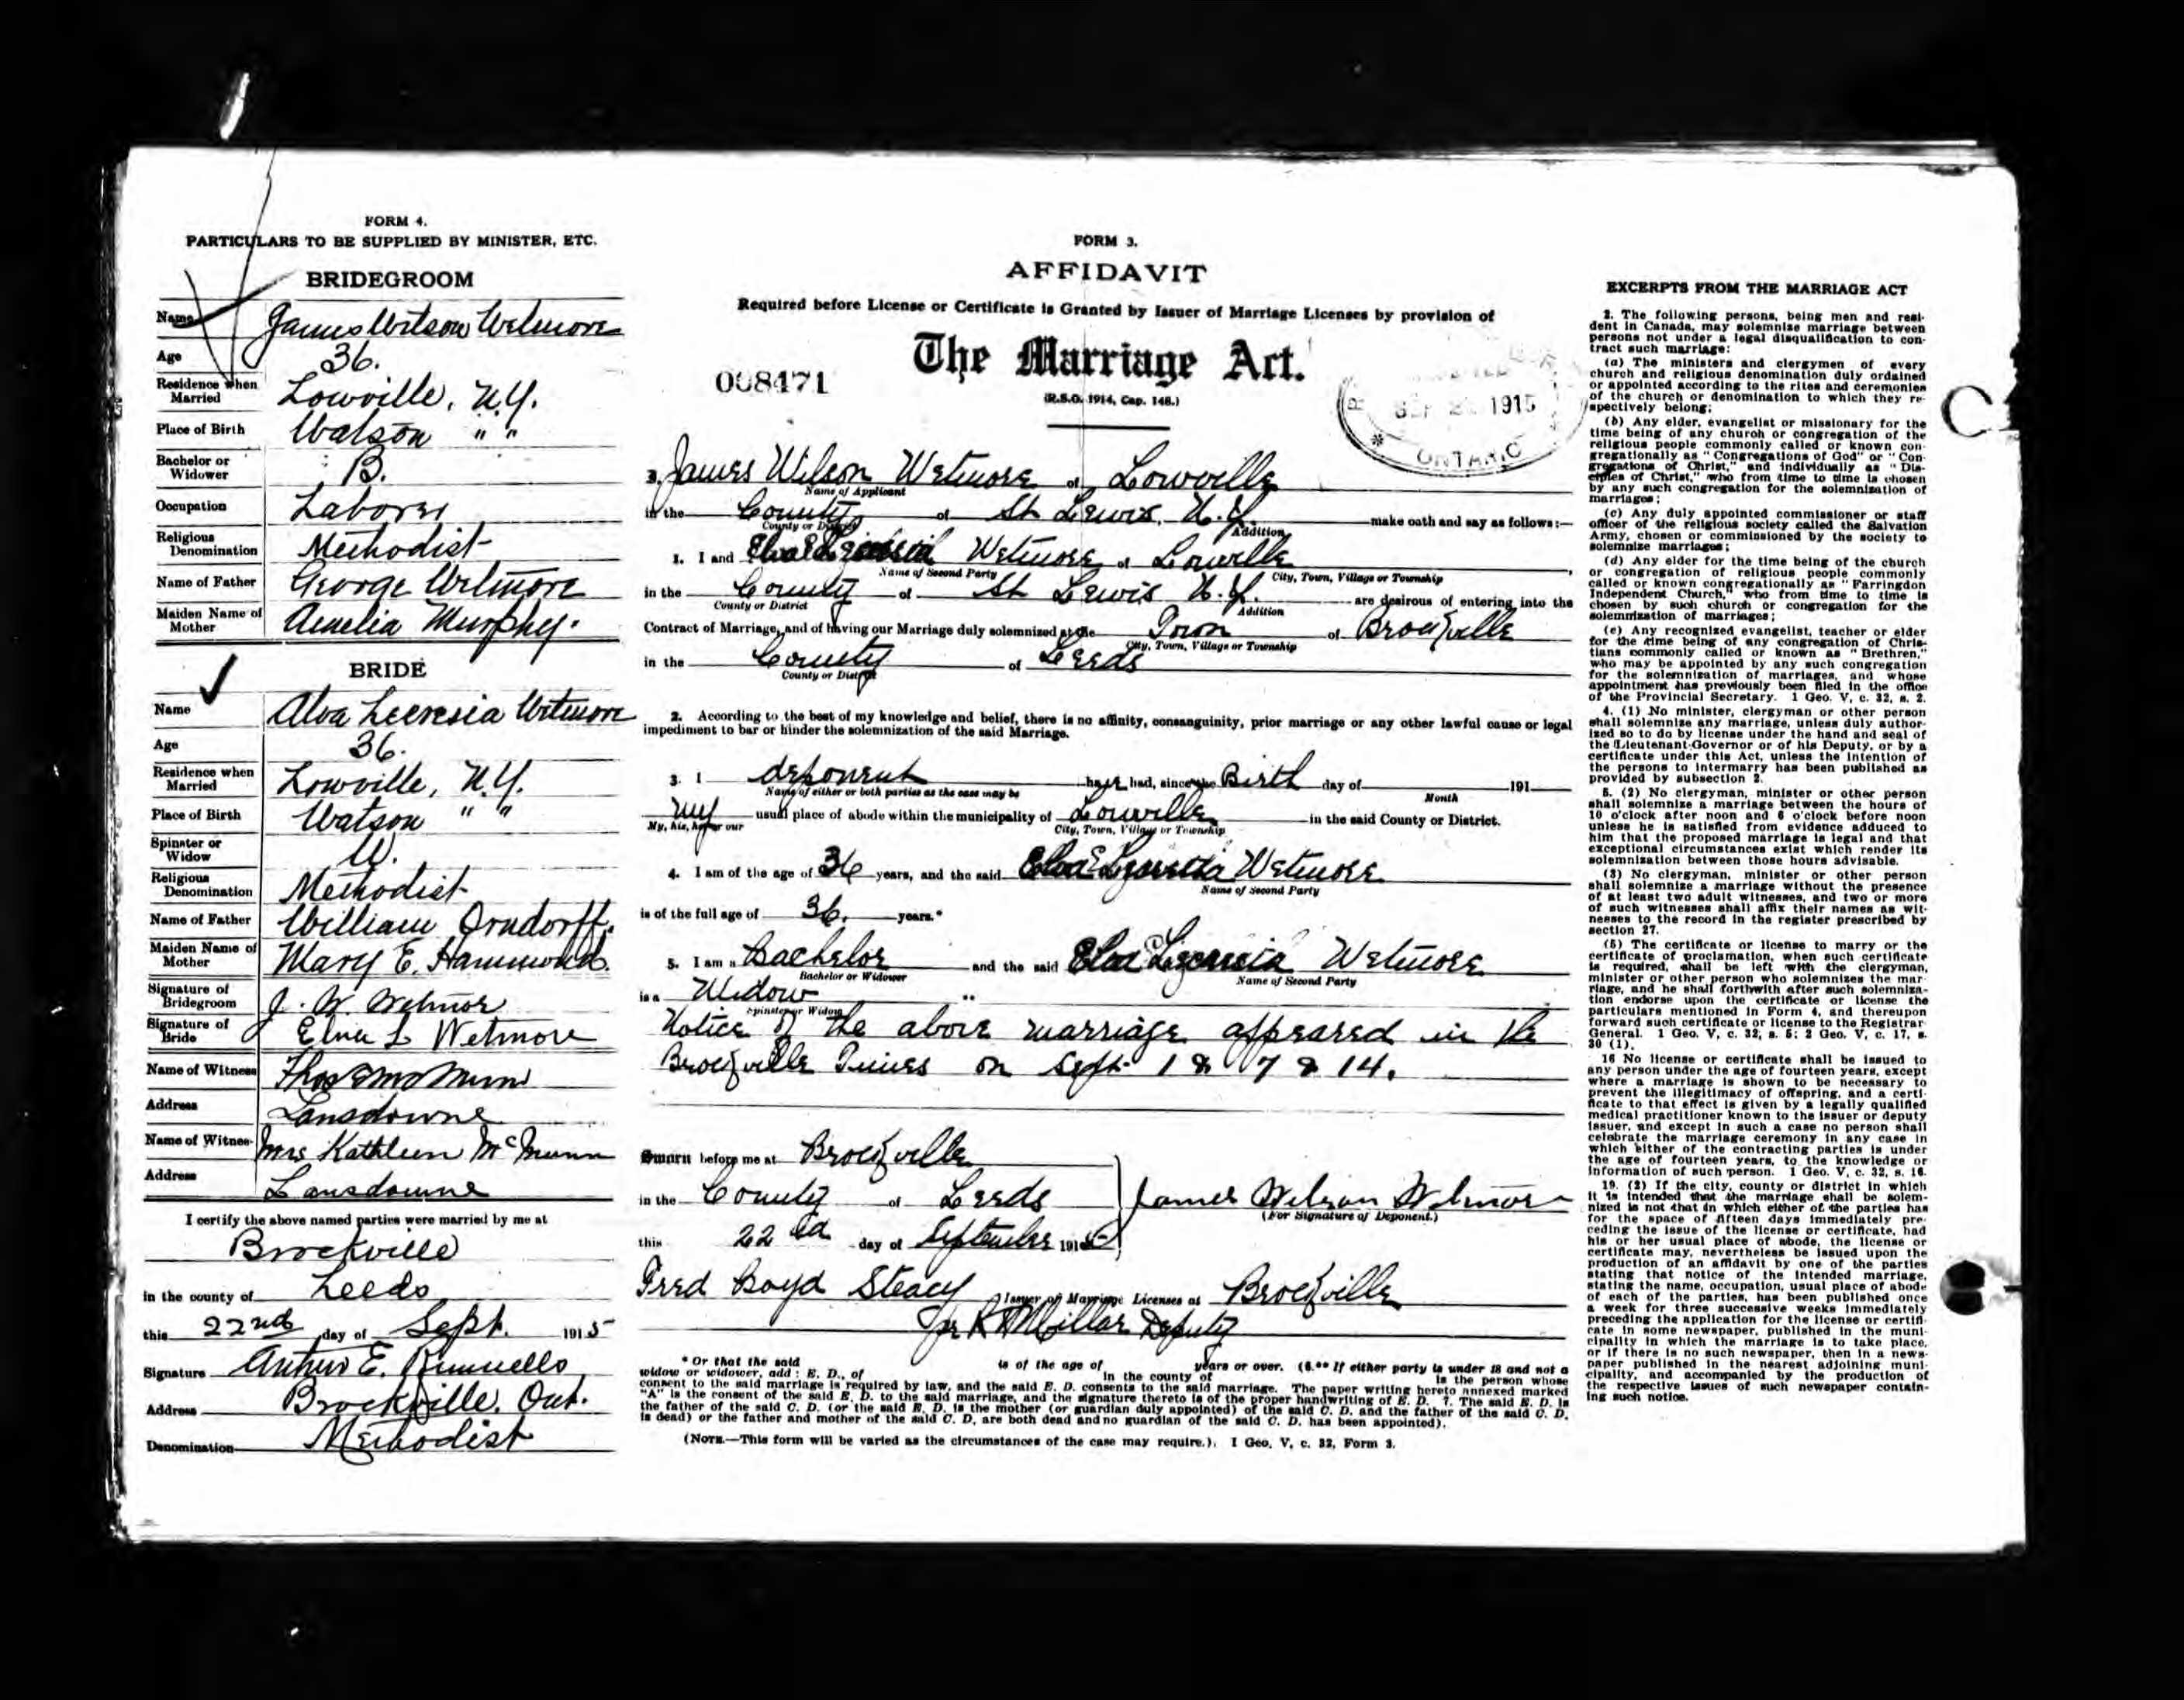 FORM 4.
PARTICULARS TO BE SUPPLIED BY MINISTER, ETC.
BRIDEGROOM
Name James Wilson Wetmore
Age 36.
Residence when Married Lowville, N.Y.
Place of Birth Watson " "
Bachelor or Widower B.
Occupation Laborer
Religious Denomination Methodist
Name of Father George Wetmore
Maiden Name of Mother Amelia Murphy.
BRIDE
Name Alva Wetmore
Age 36.
Residence when Married Lowville, N.Y.
Place of Birth Watson " "
Spinster or Widow W.
Religious Denomination Methodist
Name of Father William Orndorff.
Maiden Name of Mother Mary E. Hammond.
Signature of Bridegroom J. W. Wetmor
Signature of Bride L Wetmore
Name of Witness Thos McMunn
Address Lansdowne
Name of Witness Mrs Kathleen McMunn
Address Lansdowne
I certify the above named parties were married by me at
Brockville
in the county of Leeds
this 22nd day of Sept. 1915
Signature Arthur E. Runnells
Address Brockville. Ont.
Denomination Methodist
FORM 3.
AFFIDAVIT
Required before License or Certificate is Granted by Issuer of Marriage Licenses by provision of
The Marriage Act.
008471
(R.S.O. 1914, Cap. 148.)
SEP 1915
ONTARIO
I, James Wilson Wetmore of Lowville
Name of Applicant
in the County of St Lewis, N.Y. make oath and say as follows:—
County or District Addition
1. I and Wetmore of Lowville
Name of Second Party City, Town, Village or Township
in the County of St Lewis N.Y. are desirous of entering into the
County or District Addition
Contract of Marriage, and of having our Marriage duly solemnized at the Town of Brockville
City, Town, Village or Township
in the County of Leeds
County or District
2. According to the best of my knowledge and belief, there is no affinity, consanguinity, prior marriage or any other lawful cause or legal
impediment to bar or hinder the solemnization of the said Marriage.
3. I deponent have had, since the Birth day of 191
Name of either or both parties as the case may be Month
my usual place of abode within the municipality of Lowville in the said County or District.
My, his, her or our City, Town, Village or Township
4. I am of the age of 36 years, and the said Wetmore
Name of Second Party
is of the full age of 36. years.*
5. I am a Bachelor and the said Wetmore
Bachelor or Widower Name of Second Party
is a Widow
Spinster or Widow
Notice of the above marriage appeared in the
Brockville Times on Sept 1 & 7 & 14.
Sworn before me at Brockville
in the County of Leeds
James Wilson Wetmor
(For Signature of Deponent.)
this 22nd day of September 1915
Fred Boyd Steacy Issuer of Marriage Licenses at Brockville
per Millar Deputy
* Or that the said is of the age of years or over. (6.** If either party is under 18 and not a
widow or widower, add: E. D., of in the county of is the person whose
consent to the said marriage is required by law, and the said E. D. consents to the said marriage. The paper writing hereto annexed marked
"A" is the consent of the said E. D. to the said marriage, and the signature thereto is of the proper handwriting of E. D. 7. The said E. D. is
the father of the said C. D. (or the said E. D. is the mother (or guardian duly appointed) of the said C. D. and the father of the said C. D.
is dead) or the father and mother of the said C. D. are both dead and no guardian of the said C. D. has been appointed).
(NOTE.—This form will be varied as the circumstances of the case may require.). 1 Geo. V, c. 32, Form 3.
EXCERPTS FROM THE MARRIAGE ACT
2. The following persons, being men and resi-
dent in Canada, may solemnize marriage between
persons not under a legal disqualification to con-
tract such marriage:
(a) The ministers and clergymen of every
church and religious denomination duly ordained
or appointed according to the rites and ceremonies
of the church or denomination to which they re-
spectively belong;
(b) Any elder, evangelist or missionary for the
time being of any church or congregation of the
religious people commonly called or known con-
gregationally as "Congregations of God" or "Con-
gregations of Christ," and individually as "Dis-
ciples of Christ," who from time to time is chosen
by any such congregation for the solemnization of
marriages;
(c) Any duly appointed commissioner or staff
officer of the religious society called the Salvation
Army, chosen or commissioned by the society to
solemnize marriages;
(d) Any elder for the time being of the church
or congregation of religious people commonly
called or known congregationally as "Farringdon
Independent Church," who from time to time is
chosen by such church or congregation for the
solemnization of marriages;
(e) Any recognized evangelist, teacher or elder
for the time being of any congregation of Chris-
tians commonly called or known as "Brethren,"
who may be appointed by any such congregation
for the solemnization of marriages, and whose
appointment has previously been filed in the office
of the Provincial Secretary. 1 Geo. V, c. 32, s. 2.
4. (1) No minister, clergyman or other person
shall solemnize any marriage, unless duly author-
ized so to do by license under the hand and seal of
the Lieutenant-Governor or of his Deputy, or by a
certificate under this Act, unless the intention of
the persons to intermarry has been published as
provided by subsection 2.
5. (2) No clergyman, minister or other person
shall solemnize a marriage between the hours of
10 o'clock after noon and 6 o'clock before noon
unless he is satisfied from evidence adduced to
him that the proposed marriage is legal and that
exceptional circumstances exist which render its
solemnization between those hours advisable.
(3) No clergyman, minister or other person
shall solemnize a marriage without the presence
of at least two adult witnesses, and two or more
of such witnesses shall affix their names as wit-
nesses to the record in the register prescribed by
section 27.
(5) The certificate or license to marry or the
certificate of proclamation, when such certificate
is required, shall be left with the clergyman,
minister or other person who solemnizes the mar-
riage, and he shall forthwith after such solemniza-
tion endorse upon the certificate or license the
particulars mentioned in Form 4, and thereupon
forward such certificate or license to the Registrar
General. 1 Geo. V, c. 32, s. 5; 2 Geo. V, c. 17, s.
30 (1).
16 No license or certificate shall be issued to
any person under the age of fourteen years, except
where a marriage is shown to be necessary to
prevent the illegitimacy of offspring, and a certi-
ficate to that effect is given by a legally qualified
medical practitioner known to the issuer or deputy
issuer, and except in such a case no person shall
celebrate the marriage ceremony in any case in
which either of the contracting parties is under
the age of fourteen years, to the knowledge or
information of such person. 1 Geo. V, c. 32, s. 16.
19. (2) If the city, county or district in which
it is intended that the marriage shall be solem-
nized is not that in which either of the parties has
for the space of fifteen days immediately pre-
ceding the issue of the license or certificate, had
his or her usual place of abode, the license or
certificate may, nevertheless be issued upon the
production of an affidavit by one of the parties
stating that notice of the intended marriage,
stating the name, occupation, usual place of abode
of each of the parties, has been published once
a week for three successive weeks immediately
preceding the application for the license or certifi-
cate in some newspaper, published in the muni-
cipality in which the marriage is to take place,
or if there is no such newspaper, then in a news-
paper published in the nearest adjoining muni-
cipality, and accompanied by the production of
the respective issues of such newspaper contain-
ing such notice.